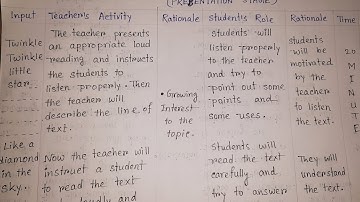 (PRESENTATION STAGE)
Input
Twinkle
Twinkle
little
star.
Like a
diamond
in the
sky.
Teacher's Activity
The teacher presents
an appropriate loud
reading and instructs
the students to
listen properly. Then
the teacher will
describe the line of
text.
Now the teacher will
instruct a student
to read the text
loudly and
Rationale
• Growing
Interest
to the
topic.
Student's Role
Students will
listen properly
to the teacher
and try to
point out some
points and
some uses.
Students will
read the text
carefully and
try to answer
Rationale
students
will be
motivated
by the
teacher
to listen
the text.
They will
understand
the text.
Time
20
M
I
N
T
E